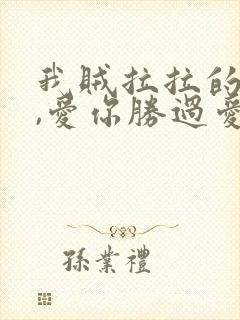 我賊拉拉的
,愛你勝過愛
孫業禮